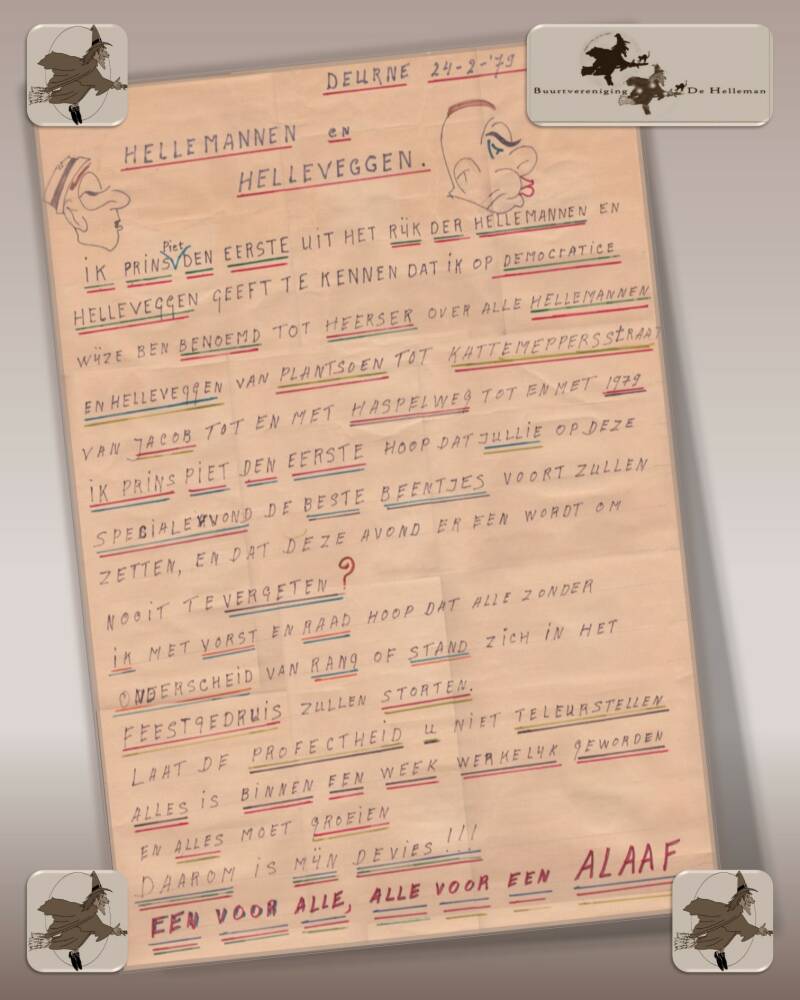 Buurtvereniging De Helleman
DEURNE 24-2-'79
HELLEMANNEN en
HELLEVEGGEN.
iK PRINS Piet DEN EERSTE UIT HET RIJK DER HELLEMANNEN EN
HELLEVEGGEN GEEFT TE KENNEN DAT iK OP DEMOCRATICE
WIJZE BEN BENOEMD TOT HEERSER OVER ALLE HELLEMANNEN
EN HELLEVEGGEN VAN PLANTSOEN TOT KATTEMEPPERSSTRAAT
VAN JACOB TOT EN MET HASPELWEG TOT EN MET 1979
iK PRINS PIET DEN EERSTE HOOP DAT JULLIE OP DEZE
SPECIALE AVOND DE BESTE BEENTJES VOORT ZULLEN
ZETTEN, EN DAT DEZE AVOND ER EEN WORDT OM
NOOIT TE VERGETEN ?
iK MET VORST EN RAAD HOOP DAT ALLE ZONDER
ONDERSCHEID VAN RANG OF STAND ZICH IN HET
FEESTGEDRUIS ZULLEN STORTEN.
LAAT DE PROFECTHEID U NIET TELEURSTELLEN
ALLES iS BINNEN EEN WEEK WERKELIJK GEWORDEN
EN ALLES MOET GROEIEN
DAAROM iS MIJN DEVIES !!!
EEN VOOR ALLE, ALLE VOOR EEN ALAAF